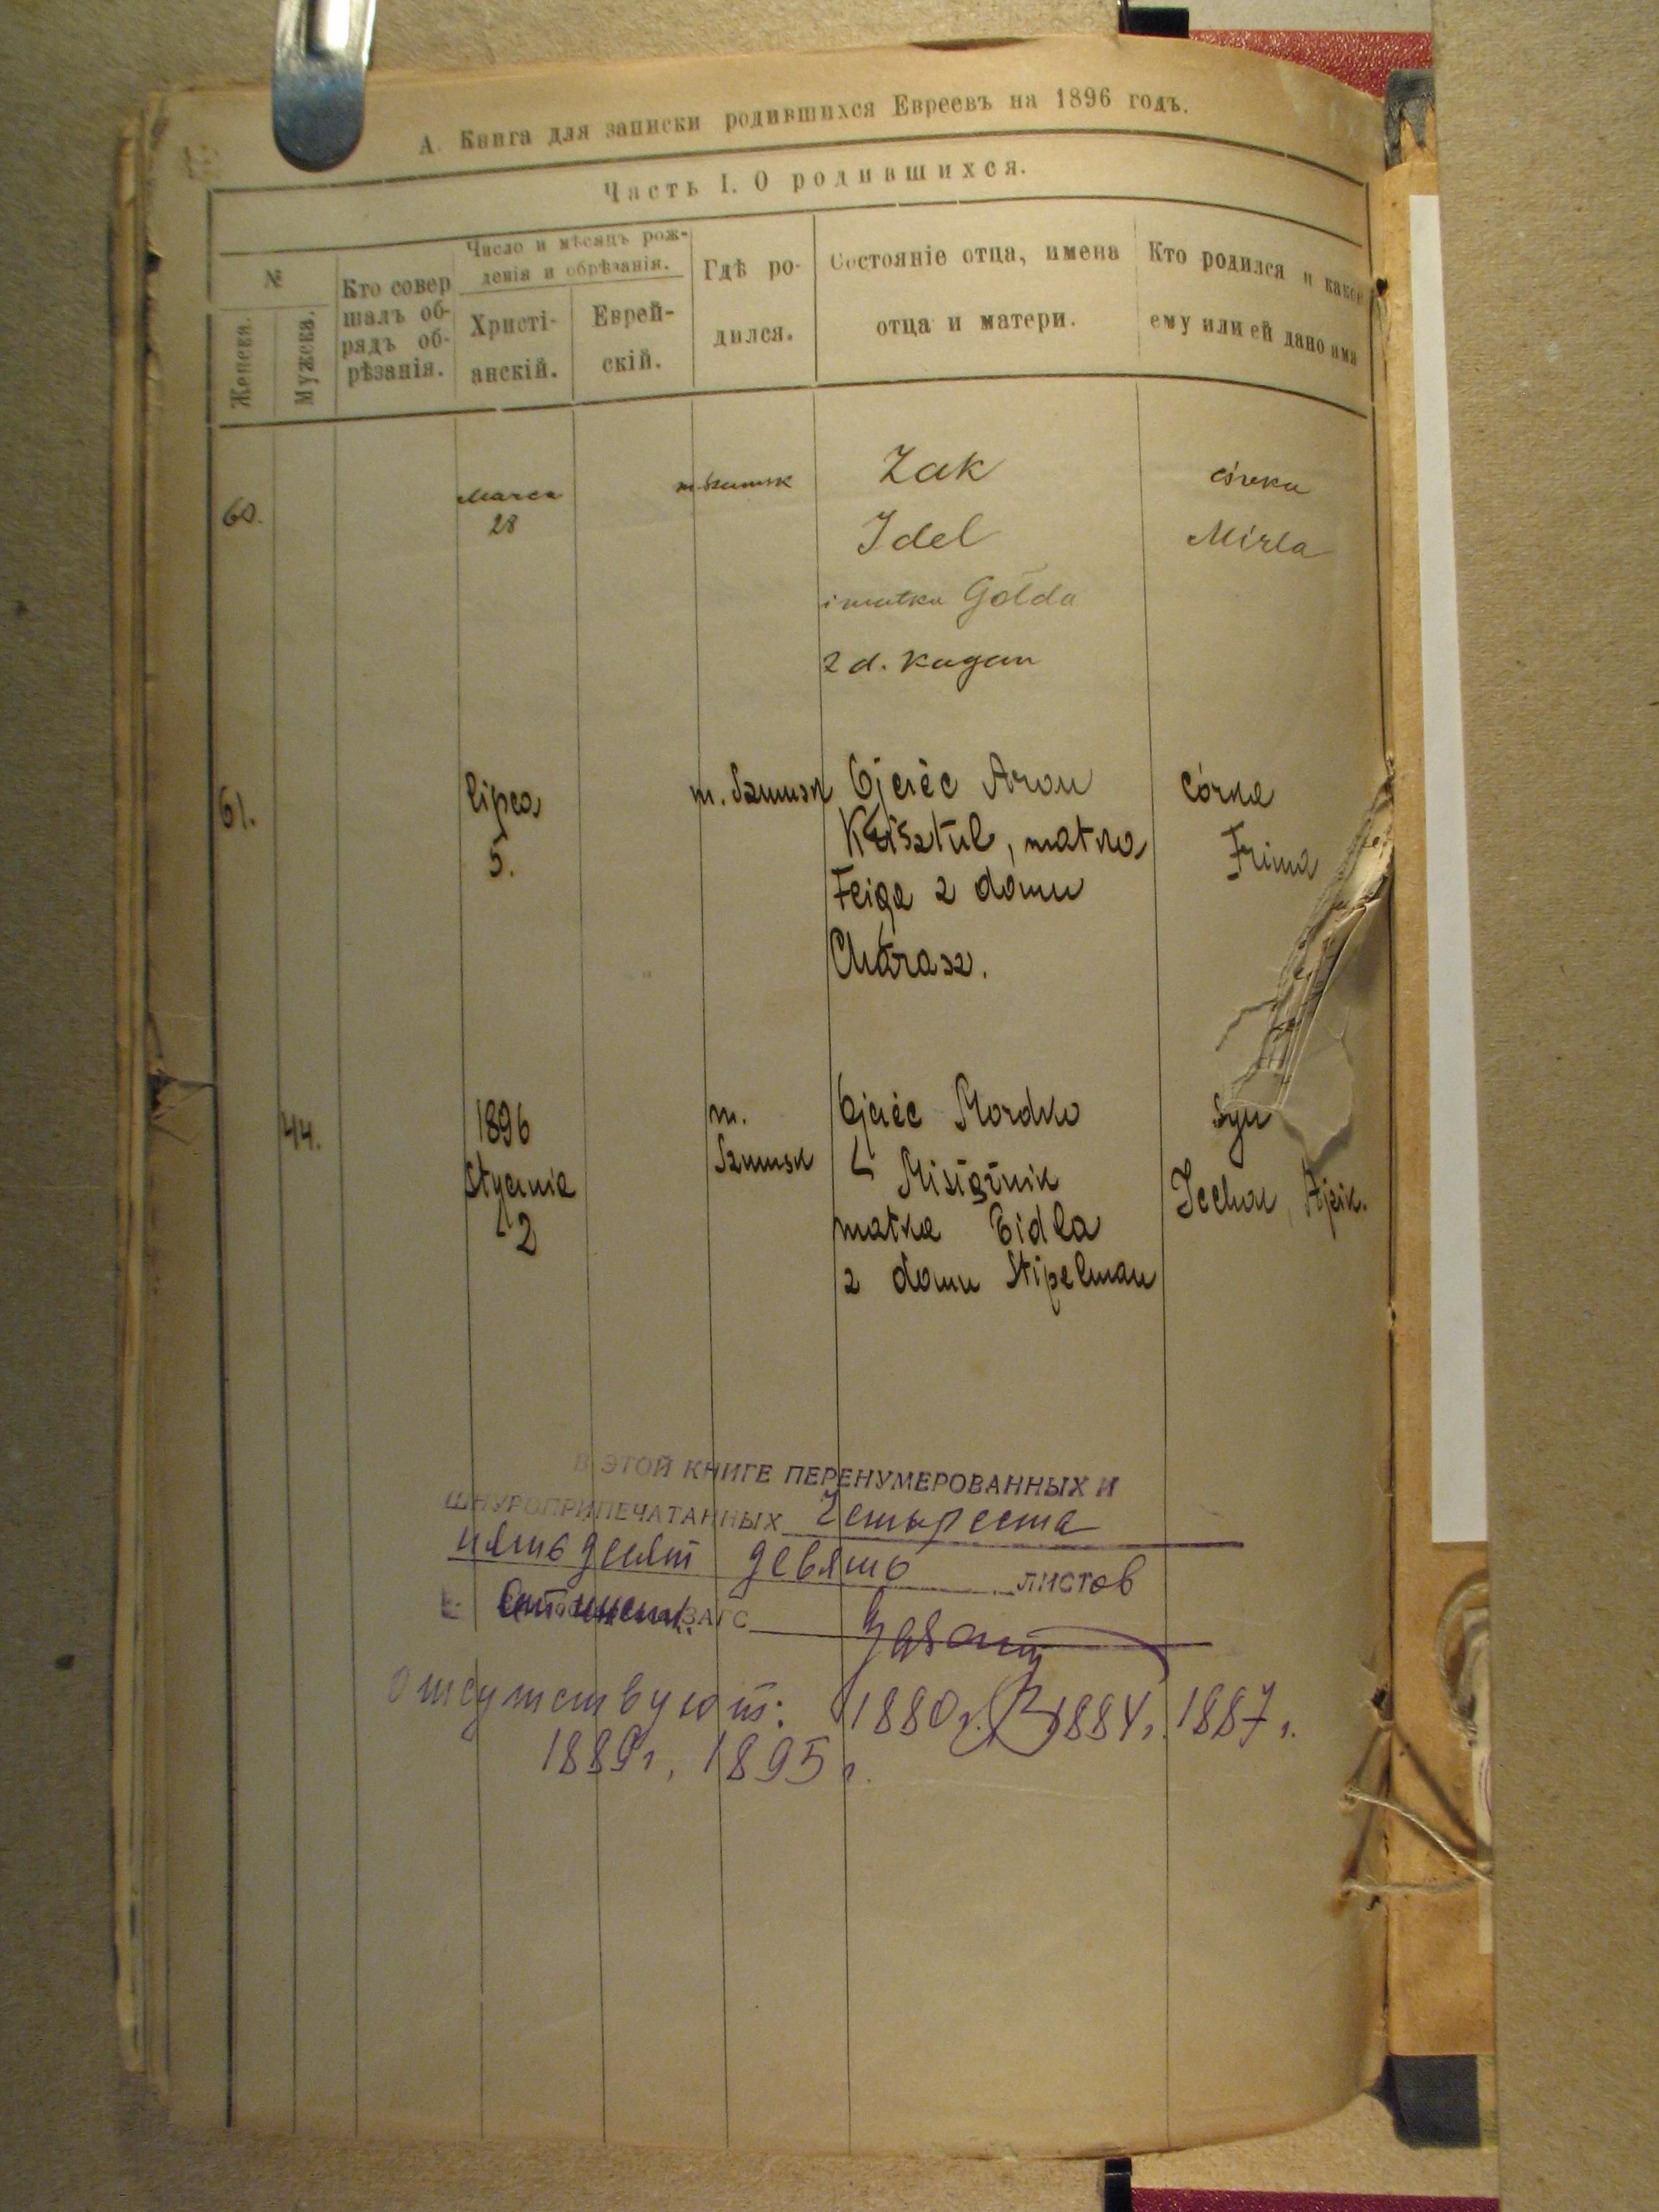 А. Книга для записки родившихся Евреевъ на 1896 годъ.
Часть I. О родившихся.
№
Женска.
Мужска.
Кто совер
шалъ об-
рядъ об-
рѣзанія.
Число и мѣсяцъ рож-
денія и обрѣзанія.
Христі-
анскій.
Еврей-
скій.
Гдѣ ро-
дился.
Состояніе отца, имена
отца и матери.
Кто родился и какое
ему или ей дано имя
60.
Marca
28
m. Szumsk
Zak
Idel
i matka Gołda
z d. Kagan
córka
Mirla
61.
lipca
5.
m. Szumsk
Ojciec Aron
Krisztul, matka
Feiga z domu
Charasz.
córka
Frima
44.
1896
Stycznia
2
m.
Szumsk
Ojciec Mordko
Misiąźnik
matka Eidla
z domu Stipelman
Syn
Icchok, Ajzik.
В ЭТОЙ КНИГЕ ПЕРЕНУМЕРОВАННЫХ И
ШНУРОПРИПЕЧАТАННЫХ Четыреста
пятьдесят девять листов
ЗАГС
Отсутствуют: 1880 г. 1884 г. 1887 г.
1889 г, 1895 г.